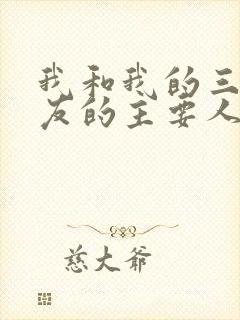 我和我的三
友的主要人
慈大爷